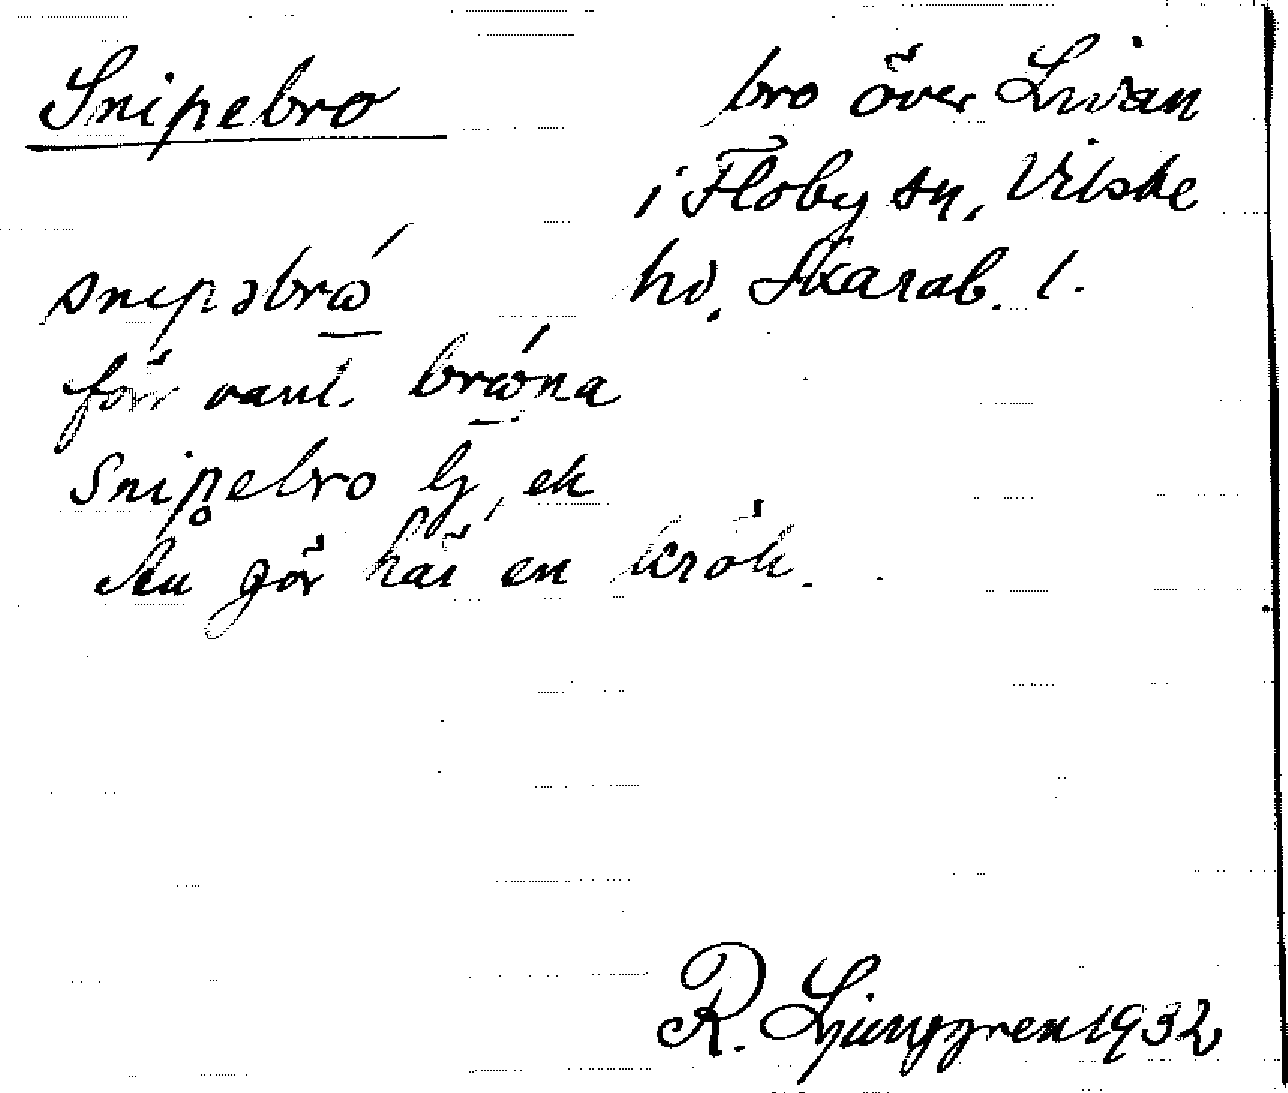 Snipebro
bro över Lidan
i Floby sn, Vilske
hd, Skarab. l.
snipəbrώ
förr vanl. brώna
Snipebro lj, ek
Ån gör här en krök.
R. Ljunggren 1932